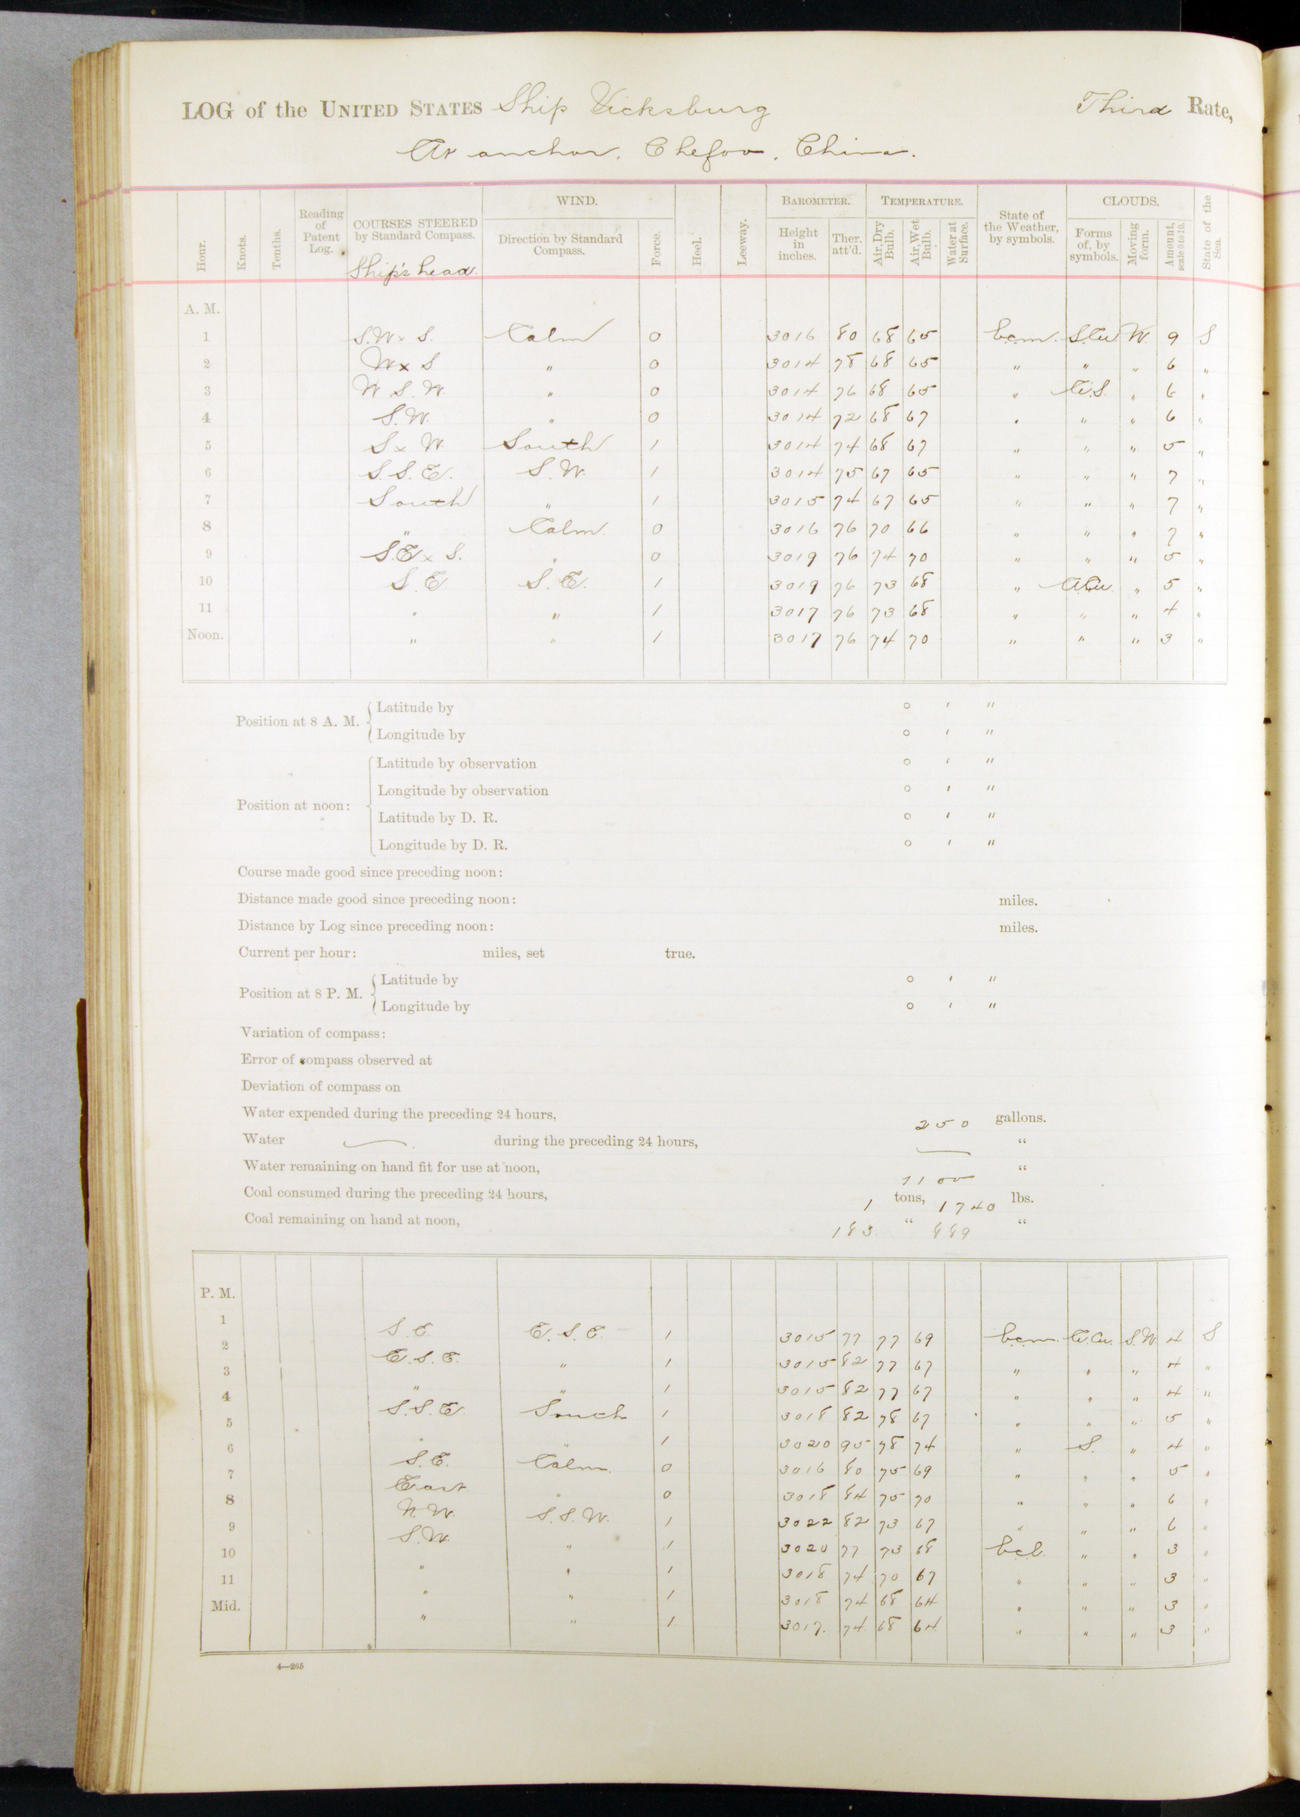 LOG of the UNITED STATES Ship Vicksburg Third Rate,
At anchor, Chefoo, China.
Hour. Knots. Tenths. Reading of Patent Log. COURSES STEERED by Standard Compass. Ship's head. WIND. Direction by Standard Compass. Force. Heel. Leeway. BAROMETER. Height in inches. Ther. att'd. TEMPERATURE. Air, Dry Bulb. Air, Wet Bulb. Water at Surface. State of the Weather, by symbols. CLOUDS. Forms of, by symbols. Moving form. Amount, scale 0 to 10. State of the Sea.
A. M.
1 S.W x S. Calm 0 3016 80 68 65 bcm. S.Cu W. 9 S
2 W x S " 0 3014 78 68 65 " " " 6 "
3 W.S.W. " 0 3014 76 68 65 " C.S. " 6 "
4 S.W. " 0 3014 72 68 67 " " " 6 "
5 S x W. South 1 3014 74 68 67 " " " 5 "
6 S.S.E. S.W. 1 3014 75 67 65 " " " 7 "
7 South " 1 3015 74 67 65 " " " 7 "
8 " Calm. 0 3016 76 70 66 " " " 7 "
9 S.E x S. " 0 3019 76 74 70 " " " 5 "
10 S.E S.E. 1 3019 76 73 68 " A.Cu. " 5 "
11 " " 1 3017 76 73 68 " " " 4 "
Noon. " " 1 3017 76 74 70 " " " 3 "
Position at 8 A. M. Latitude by ° ' "
Longitude by ° ' "
Position at noon: Latitude by observation ° ' "
Longitude by observation ° ' "
Latitude by D. R. ° ' "
Longitude by D. R. ° ' "
Course made good since preceding noon:
Distance made good since preceding noon: miles.
Distance by Log since preceding noon: miles.
Current per hour: miles, set true.
Position at 8 P. M. Latitude by ° ' "
Longitude by ° ' "
Variation of compass:
Error of compass observed at
Deviation of compass on
Water expended during the preceding 24 hours, 250 gallons.
Water — during the preceding 24 hours, — "
Water remaining on hand fit for use at noon, 7100 "
Coal consumed during the preceding 24 hours, 1 tons, 1740 lbs.
Coal remaining on hand at noon, 183 " 889 "
P. M.
1 S.E. E.S.E. 1 3015 77 77 69 bcm. C.Cu. S.W. 4 S
2 E.S.E. " 1 3015 82 77 67 " " " 4 "
3 " " 1 3015 82 77 67 " " " 4 "
4 S.S.E. South 1 3018 82 78 67 " " " 5 "
5 " " 1 3020 95 78 74 " S. " 4 "
6 S.E. Calm. 0 3016 80 75 69 " " " 5 "
7 East " 0 3018 84 75 70 " " " 6 "
8 N.W. S.S.W. 1 3022 82 73 67 " " " 6 "
9 S.W. " 1 3020 77 73 68 bcb. " " 3 "
10 " " 1 3018 74 70 67 " " " 3 "
11 " " 1 3018 74 68 64 " " " 3 "
Mid. " " 1 3017. 74 68 64 " " " 3 "
4—265